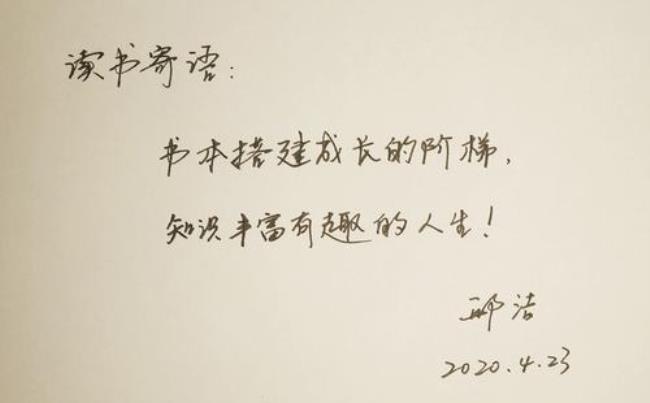 读书寄语：
书本搭建成长的阶梯，
知识丰富有趣的人生！
邴洁
2020.4.23